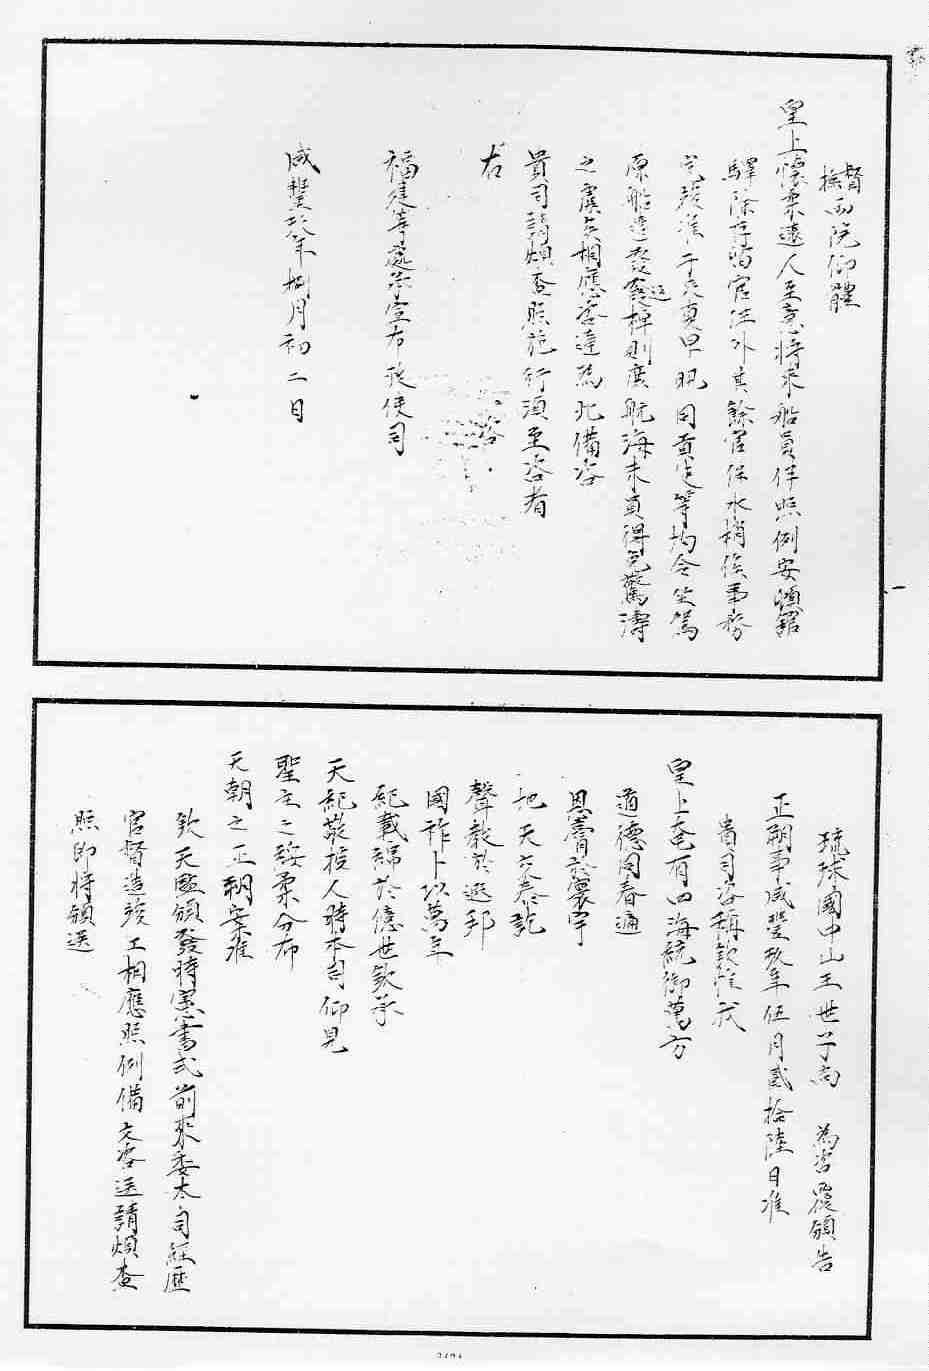 督撫兩院仰體
皇上懷柔遠人至意將來船員伴照例安頓舘
驛除存留官伴外其餘官伴水梢俟事務
完竣准于夏早汛同貢使等均令坐駕
原船遣發回棹則廣航海末員得免驚濤
之虞矣相應咨達為此備咨
貴司請煩查照施行須至咨者
右
咨
福建等處承宣布政使司
咸豐玖年捌月初二日
琉球國中山王世子尚 為咨覆頒告
正朔事咸豐玖年伍月貳拾陸日准
貴司咨稱欽惟我
皇上奄有四海統御萬方
道德同春通
恩膏於寰宇
地天交泰訖
聲教於遐邦
國祚卜以萬年
紀載綿於億世欽承
天紀敬授人時本司仰見
聖主之綏柔分布
天朝之正朔案准
欽天監頒發時憲書式前來委本司經歷
官督造竣工相應照例備文咨送請煩查
照即將頒送